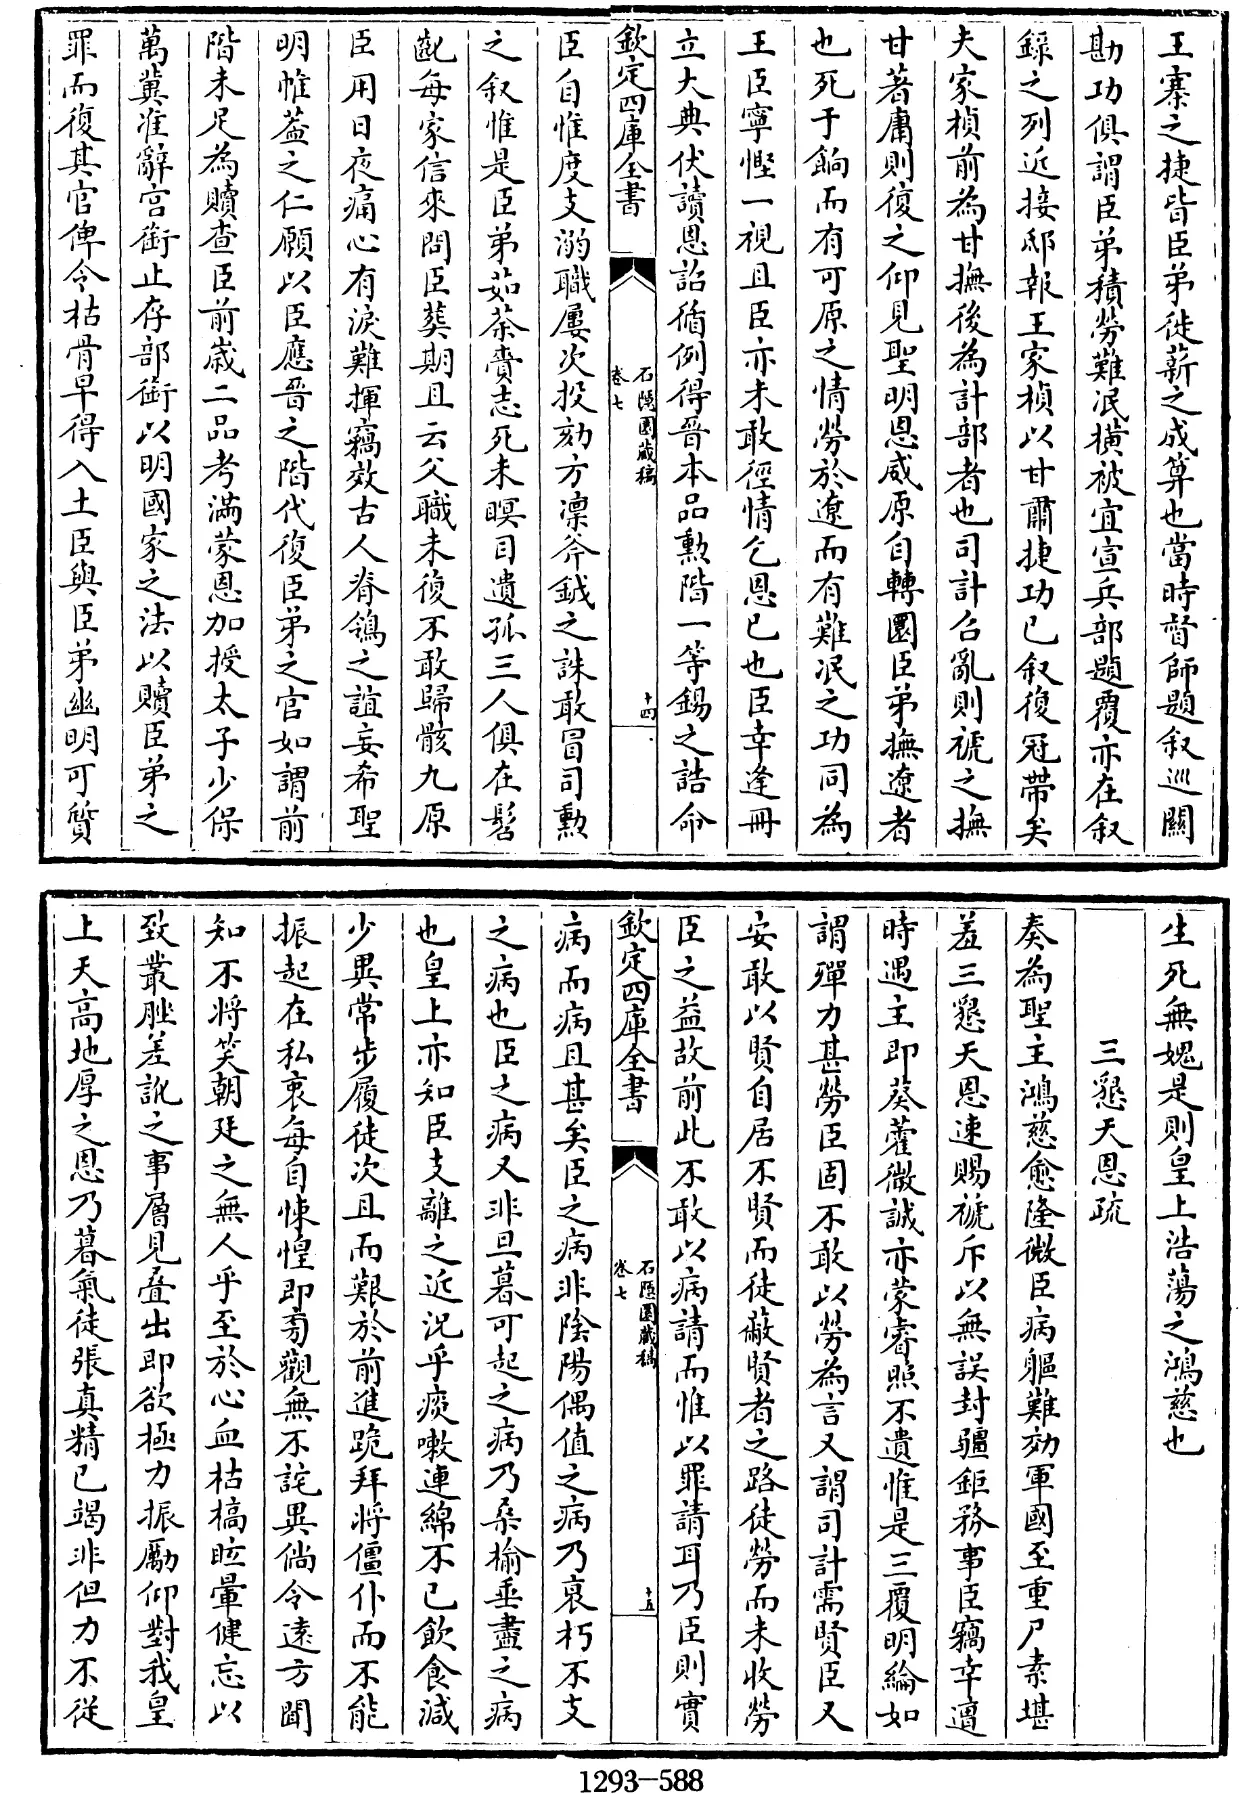 王寨之捷皆臣弟徙薪之成算也當時督師題叙巡關
勘功俱謂臣弟積勞難泯橫被宜宣兵部題覆亦在叙
錄之列近接邸報王家楨以甘肅捷功已叙復冠帶矣
夫家楨前為甘撫後為計部者也司計召亂則褫之撫
甘著庸則復之仰見聖明恩威原自轉圜臣弟撫遼者
也死于餉而有可原之情勞於遼而有難泯之功同為
王臣寧慳一視且臣亦未敢徑情乞恩已也臣幸逢冊
立大典伏讀恩詔循例得晉本品勲階一等錫之誥命
欽定四庫全書
石隱園藏稿
卷七
十四
臣自惟度支溺職屢次投劾方凛斧鉞之誅敢冒司勲
之叙惟是臣弟茹荼賫志死未暝目遺孤三人俱在髫
齔每家信來問臣葬期且云父職未復不敢歸骸九原
臣用日夜痛心有淚難揮竊效古人脊鴒之誼妄希聖
明帷葢之仁願以臣應晉之階代復臣弟之官如謂前
階未足為贖查臣前歳二品考滿蒙恩加授太子少保
萬冀准辭宫銜止存部銜以明國家之法以贖臣弟之
罪而復其官俾令枯骨早得入土臣與臣弟幽明可質
生死無媿是則皇上浩蕩之鴻慈也
三懇天恩疏
奏為聖主鴻慈愈隆微臣病軀難効軍國至重尸素堪
羞三懇天恩速賜褫斥以無誤封疆鉅務事臣竊幸遭
時遇主即葵藿微誠亦蒙睿照不遺惟是三覆明綸如
謂殫力甚勞臣固不敢以勞為言又謂司計需賢臣又
安敢以賢自居不賢而徒蔽賢者之路徒勞而未收勞
臣之益故前此不敢以病請而惟以罪請耳乃臣則實
欽定四庫全書
石隱園藏稿
卷七
十五
病而病且甚矣臣之病非陰陽偶值之病乃衰朽不支
之病也臣之病又非旦暮可起之病乃桑榆垂盡之病
也皇上亦知臣支離之近況乎痰嗽連綿不已飲食減
少異常步履徒次且而艱於前進跪拜將僵仆而不能
振起在私衷每自悚惶即旁觀無不詫異倘令遠方聞
知不將笑朝廷之無人乎至於心血枯槁眩暈健忘以
致叢脞差訛之事層見叠出即欲極力振勵仰對我皇
上天高地厚之恩乃暮氣徒張真精已竭非但力不從
1293—588